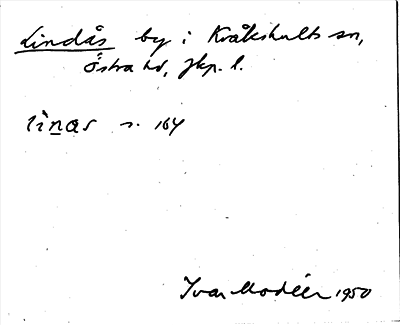 Lindås by i Kråkshults sn,
Östra hd, Jkp. l.
linas s. 164
Ivar Modéer 1950